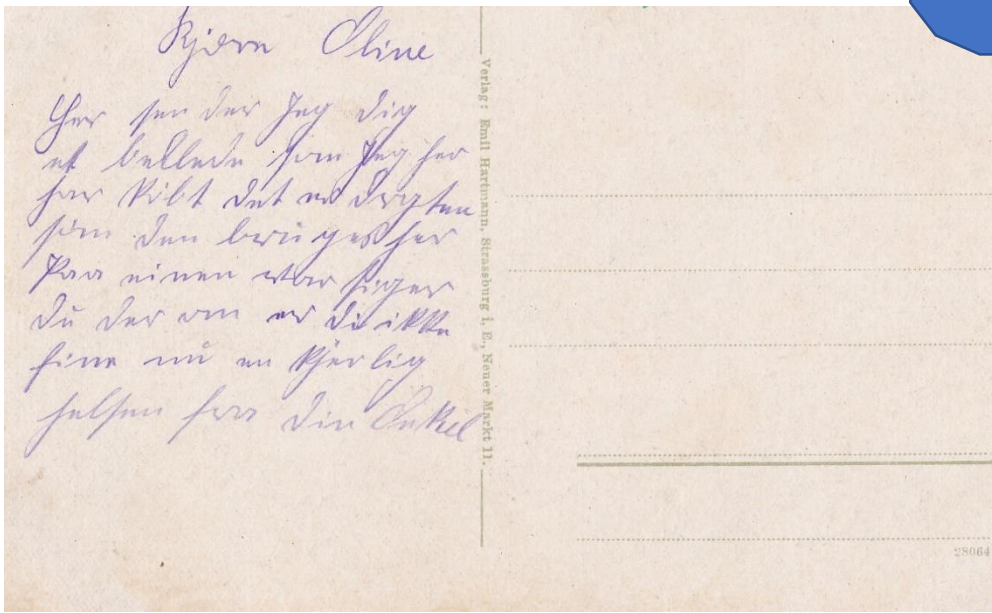 Kjære Oline
Her sender Jeg dig
et bellede som Jeg her
har Kibt det er dragten
som den bruges her
Paa einen war siger
du der om er di ikke
fine nu en Kjerlig
helsen fra din Onkel
Verlag: Emil Hartmann, Strassburg i. E., Neuer Markt 11.
28064